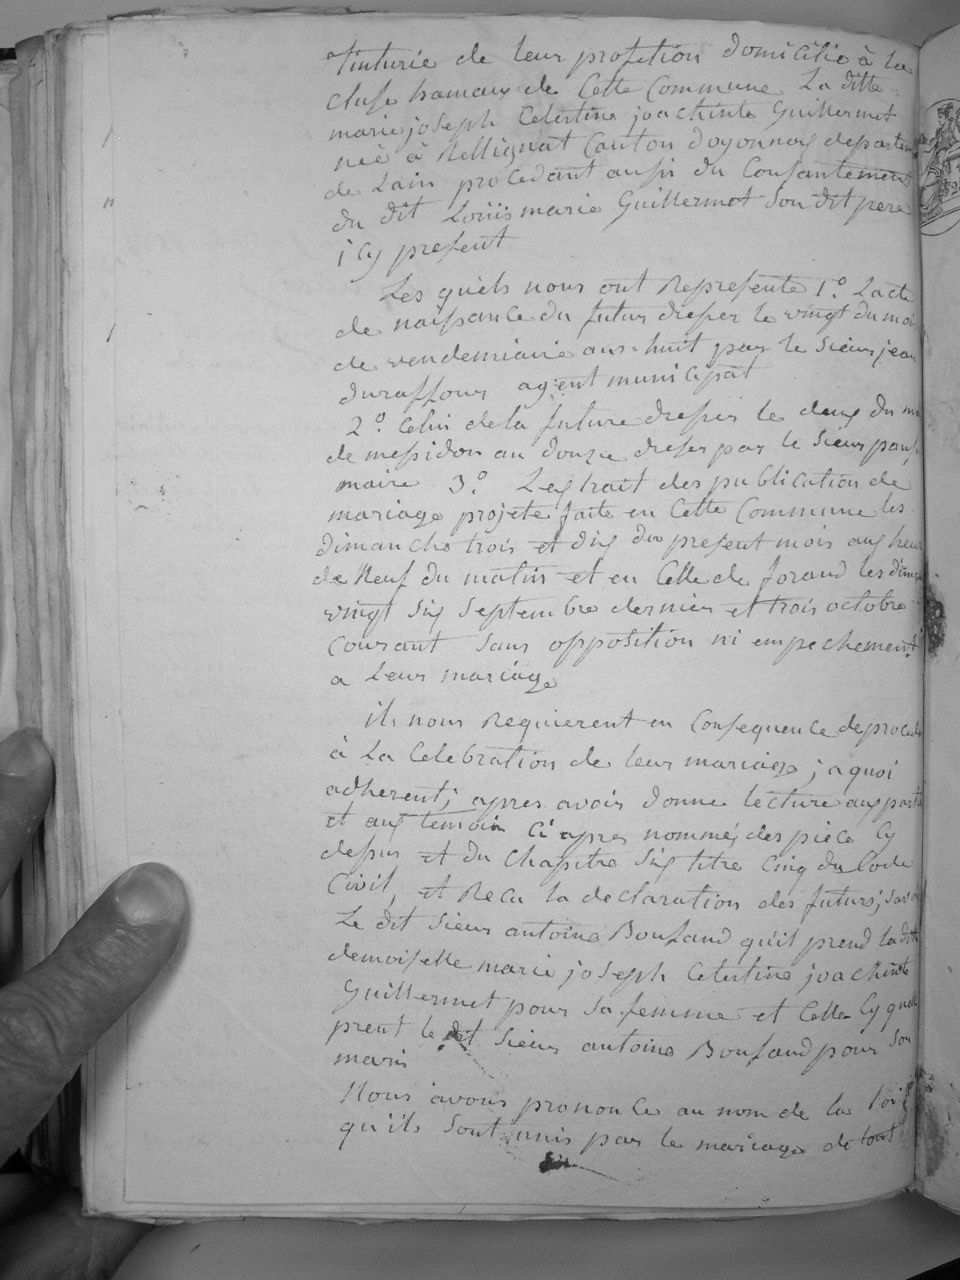 tinturié de leur profetion domicilié à la
cluse hamaux de Cette Commune La ditte
marie joseph Celestine joachinte Guillermet
née à Bellignat Canton doyonnax departem
de Lain procédant aussi du Consantement
du dit Loüis marie Guillermet Son dit pere
icy present
Les quels nous ont Represente 1.º Lacte
de naissance du futur dresser le vingt du moi
de vendemiaire ans huit par le Sieur jean
duraffour agent municipat
2.º Celui de la future dresser le deux du m
de messidor an douze dresser par le Sieur
maire 3.º Lextrait des publication de
mariage projeté faite en Cette Commune les
dimanche trois et dix du present mois aux heur
de Neuf du matin et en Celle de forand les dim
vingt Six Septembre dernier et trois octobre
Courant Sans opposition ni empechement
a Leur mariage
ils nous Requierent en Consequence de proceder
à La Celebration de leur mariage j a quoi
adherent; apres avoir donné lecture aux parti
et aux temoin Ci apres nommés des piece Cy
dessus et du Chapitre Six titre Cinq du Code
Civil, et Recu la declaration des futurs; savoir
Le dit Sieur antoine Bonfand qu'il prend la dit
demoiselle marie joseph Celestine joachinte
Guillermet pour Sa femme et Celle Cy quelle
prent le dit Sieur antoine Bonfand pour Son
maris
Nous avons prononcé au nom de la loi
qu'ils Sont unis par le mariage de tout